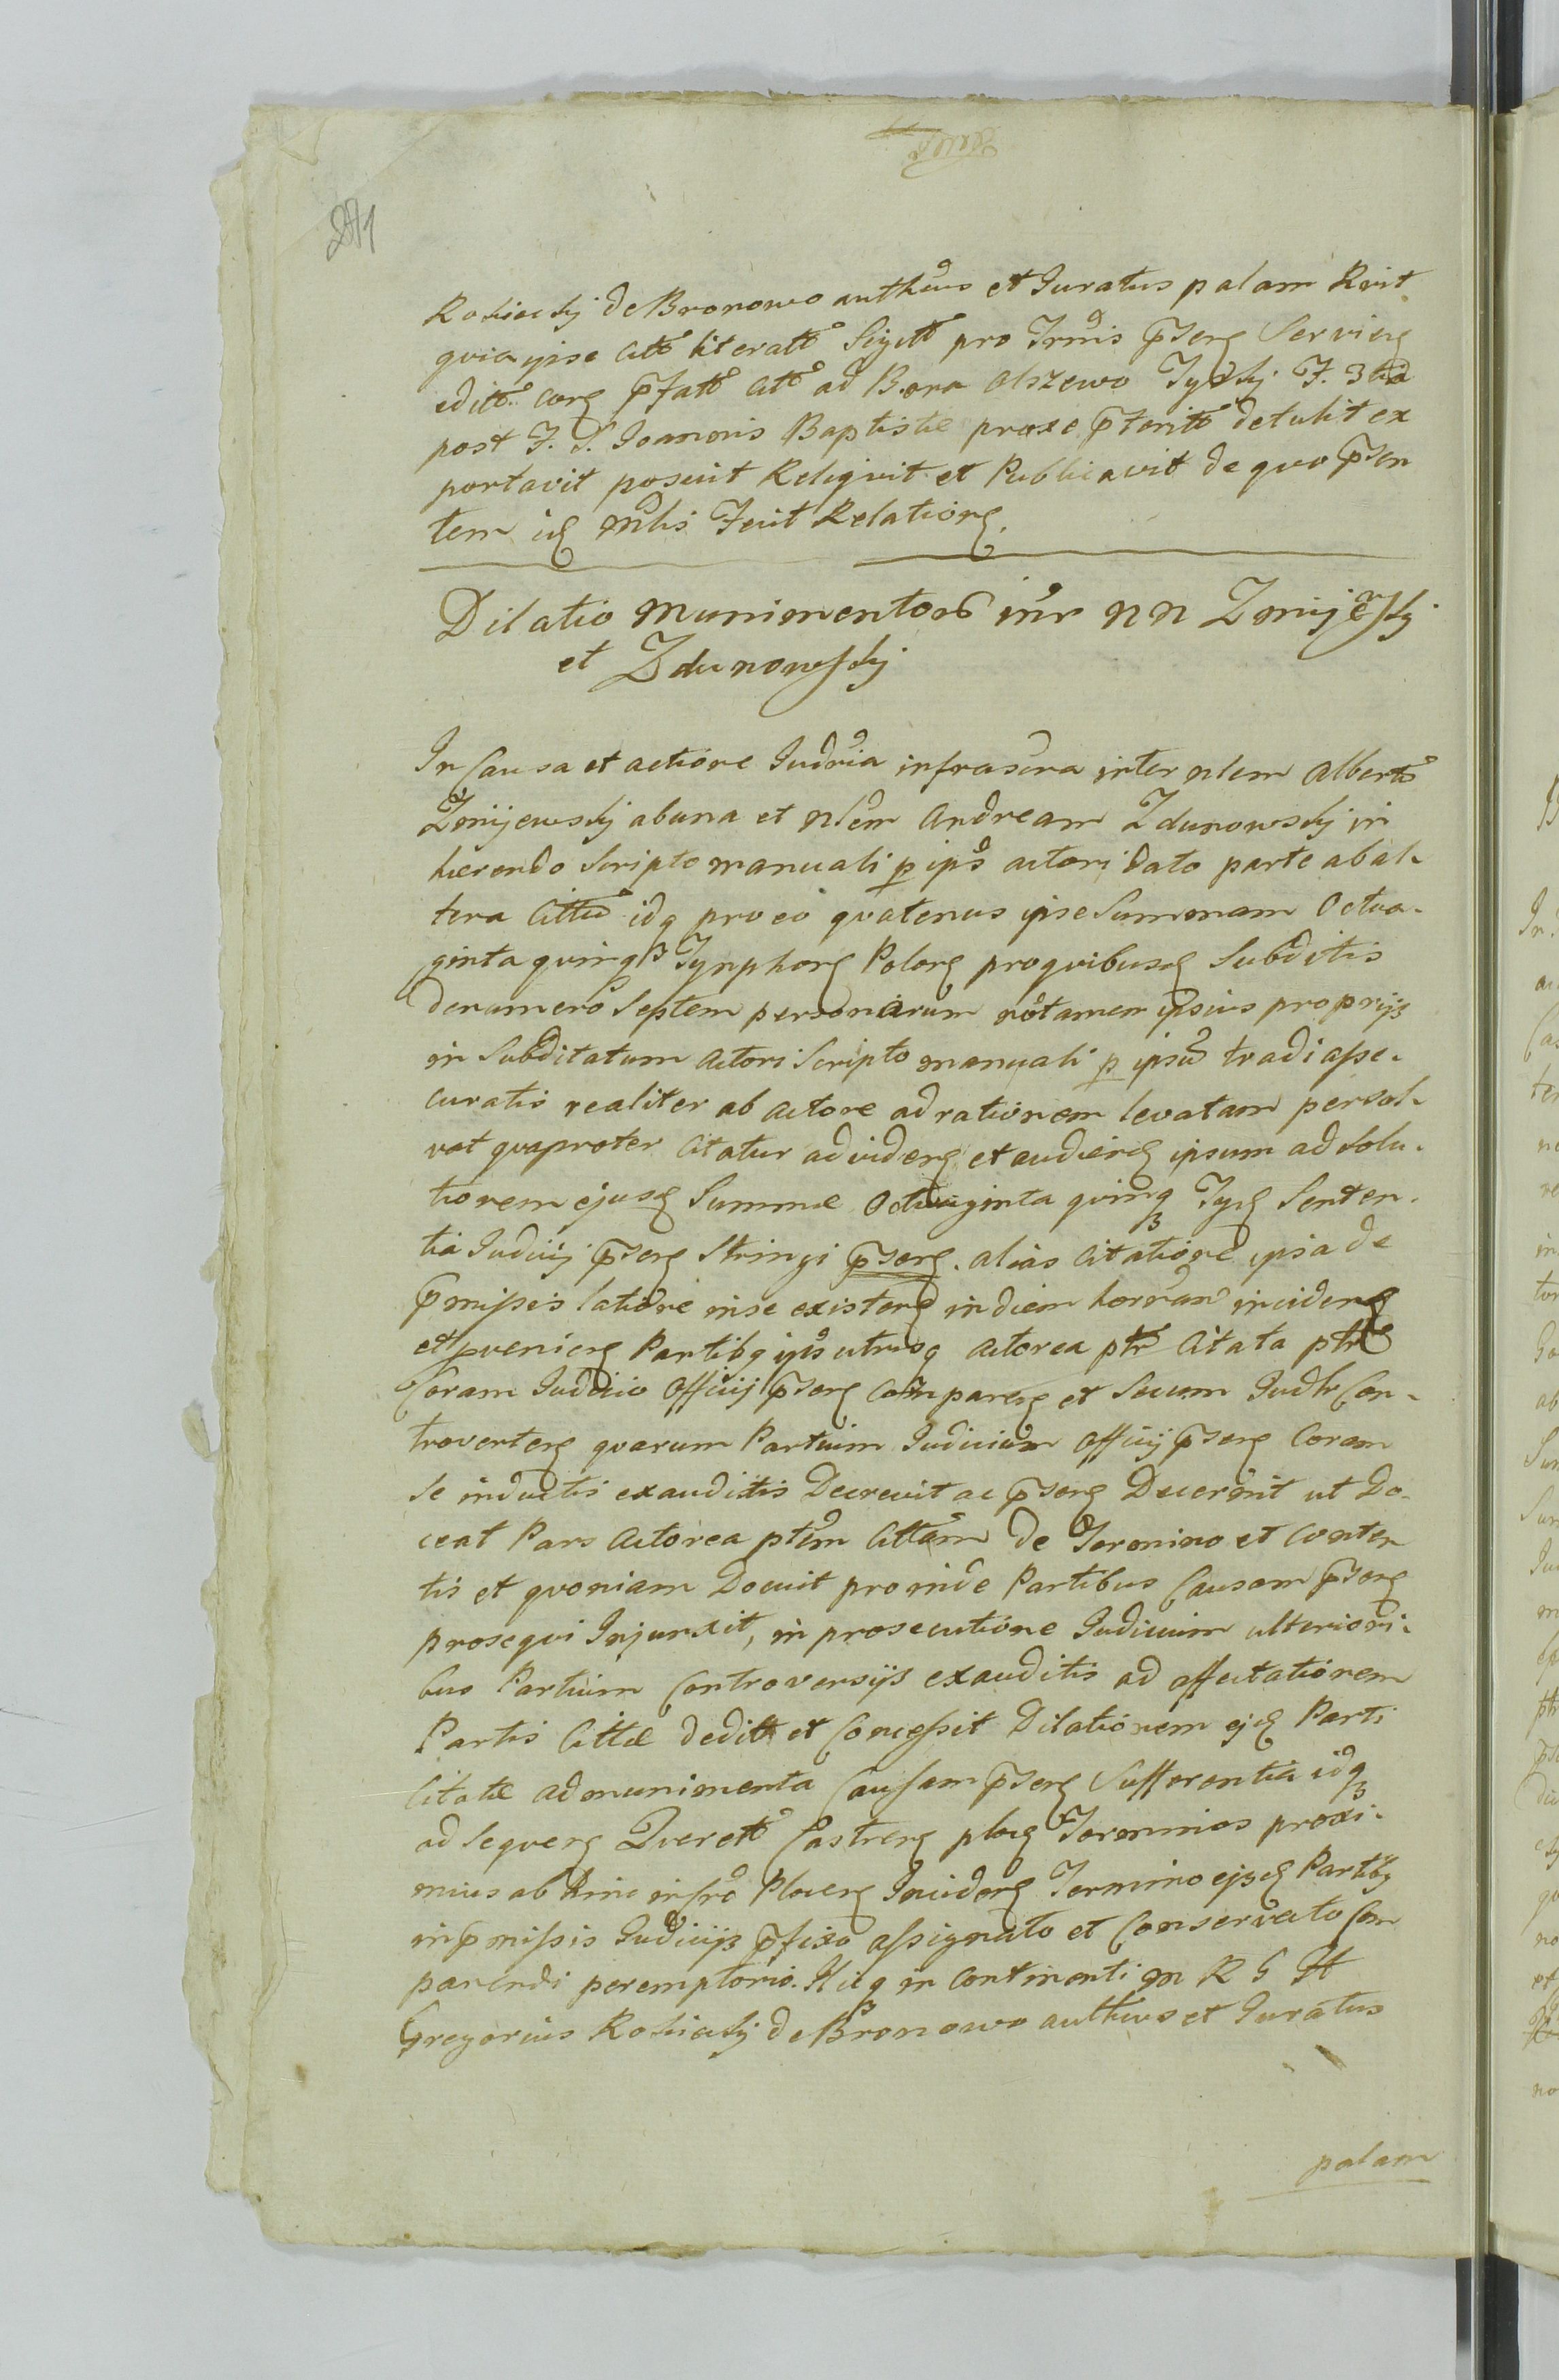 281
Rokicskj de Bronowo authcus et Juratus palam Rcvit
qvia ipse Citto literatto Sigitto pro Trmis p̄sens Serviens
editto cora p̄fatto Citto ad Bona Olszewo F. 3tia
post F. S. Joannis Baptistæ proxe p̄teritto detulit ex
portavit posuit Reliqvit et Publicavit de quo p̄sen
tem Fecit Relationē.
Dilatio Munimentor inr NN Zmijewskj
et Zdunowskj
In Causa et actione Judria infrascra inter nlem Albertū
Zmijewskj ab una et Nlem Andream Zdunowskj in
hærendo Scripto manuali p ips actori dato parte ab al-
tera Cittū idq pro eo qvatenus ipse Summam Octua-
ginta qvinq Tynphon Polon pro qvibusd Subditis
de numero Septem personarum notamen ipsius proprijs
in Subditatum Actori Scripto manuali p ipsū tradi asse-
curatis realiter ab Actore ad rationem levatam persol-
vat qvaproter Citatur ad vidend et audiend ipsum ad Solu-
tionem ejusd Summæ Octuaginta qvinq Senten-
tia Judicij p̄sens Stringi p̄sens. alias Citatione ipsa de
p̄missis latiore in se existen in diem hornam inciden
et pvenien Partibq ips utriusq Actorea ptæ Citata ptæ
Coram Judicio Officij p̄sens Comparen et Secum Judlr Con-
troverten qvarum Partium Judicium Officij p̄sens Coram
Se inductis exauditis Decrevit ac p̄sens Decernit ut Do-
ceat Pars Actorea ptem Cittam de Termino et Conten
tis et qvoniam Docuit proinde Partibus Causam p̄sens
proseqvi Injunxit, in prosecutione Judicium ulteriori-
bus Partium Controversijs exauditis ad affectationem
Partis Cittæ dedit et Concessit Dilationem ejsd Parti
Citatæ ad munimenta Causam p̄sens Sufferentia idq
ad Seqven Qverell Castren ploc Terminos proxi-
mius ab hinc infro Plocen Inciden Termino ejsd Partibq
in p̄missis Judicijs p̄fixo assignato et Conservato Com
parendi peremptorio. Hicq in Continenti M R G H
Gregorius Rokickj de Bronowo authcus et Juratus
palam